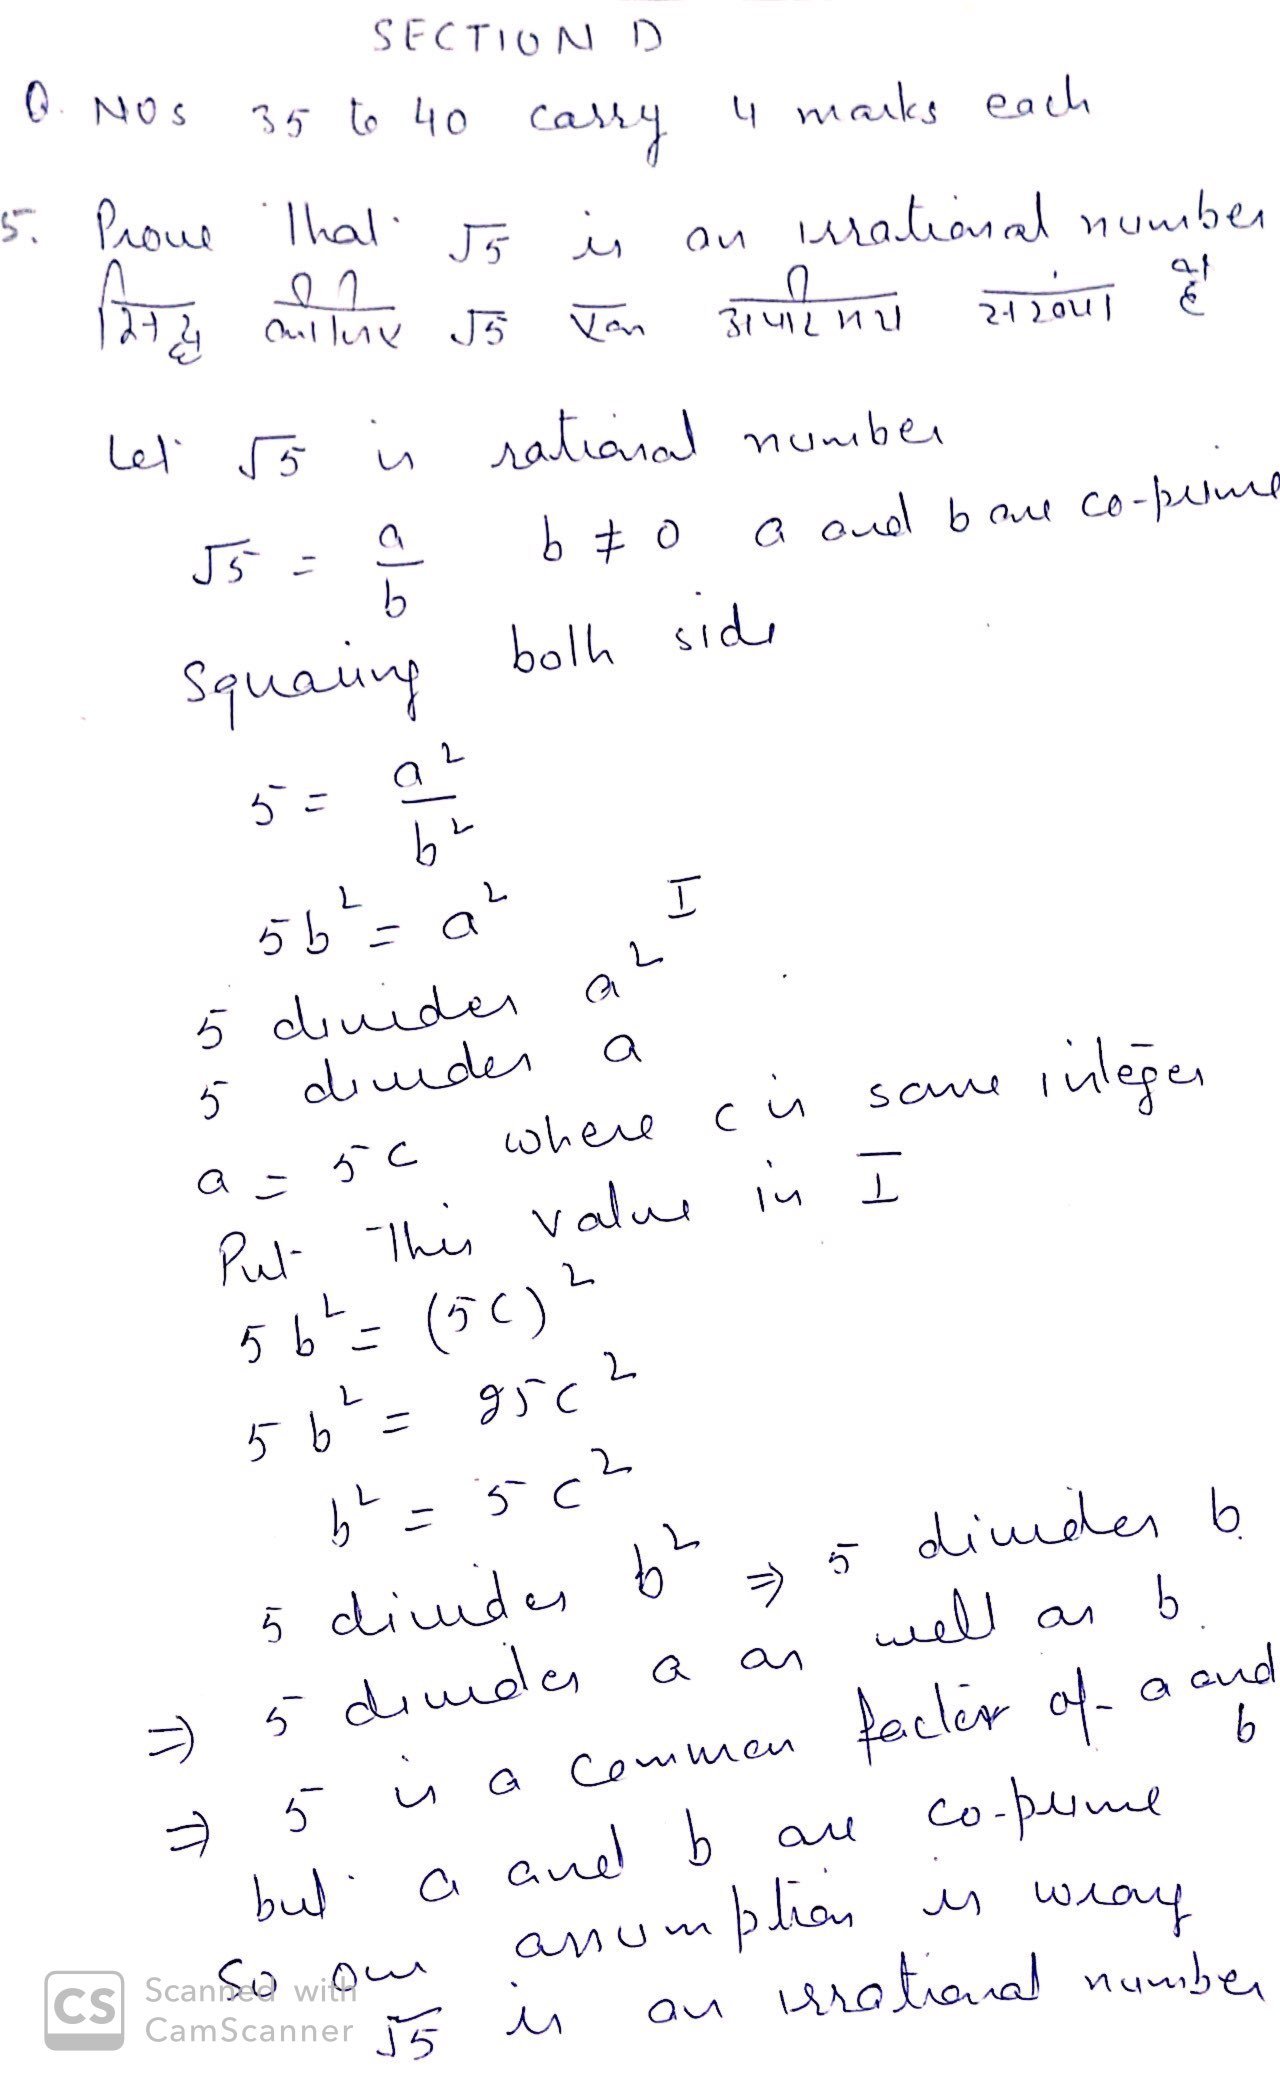 SECTION D
Q. NOS 35 to 40 carry 4 marks each
5. Prove that √5 is an irrational number
सिद्ध कीजिए √5 एक अपरिमेय संख्या है
Let √5 is rational number
√5 = a/b b ≠ 0 a and b are co-prime
Squaring both side
5 = a²/b²
5b² = a² I
5 divides a²
5 divides a
a = 5c where c is some integer
Put this value in I
5b² = (5c)²
5b² = 25c²
b² = 5c²
5 divides b² ⇒ 5 divides b
⇒ 5 divides a as well as b
⇒ 5 is a common factor of a and b
but a and b are co-prime
So our assumption is wrong
√5 is an irrational number
CS Scanned with
CamScanner